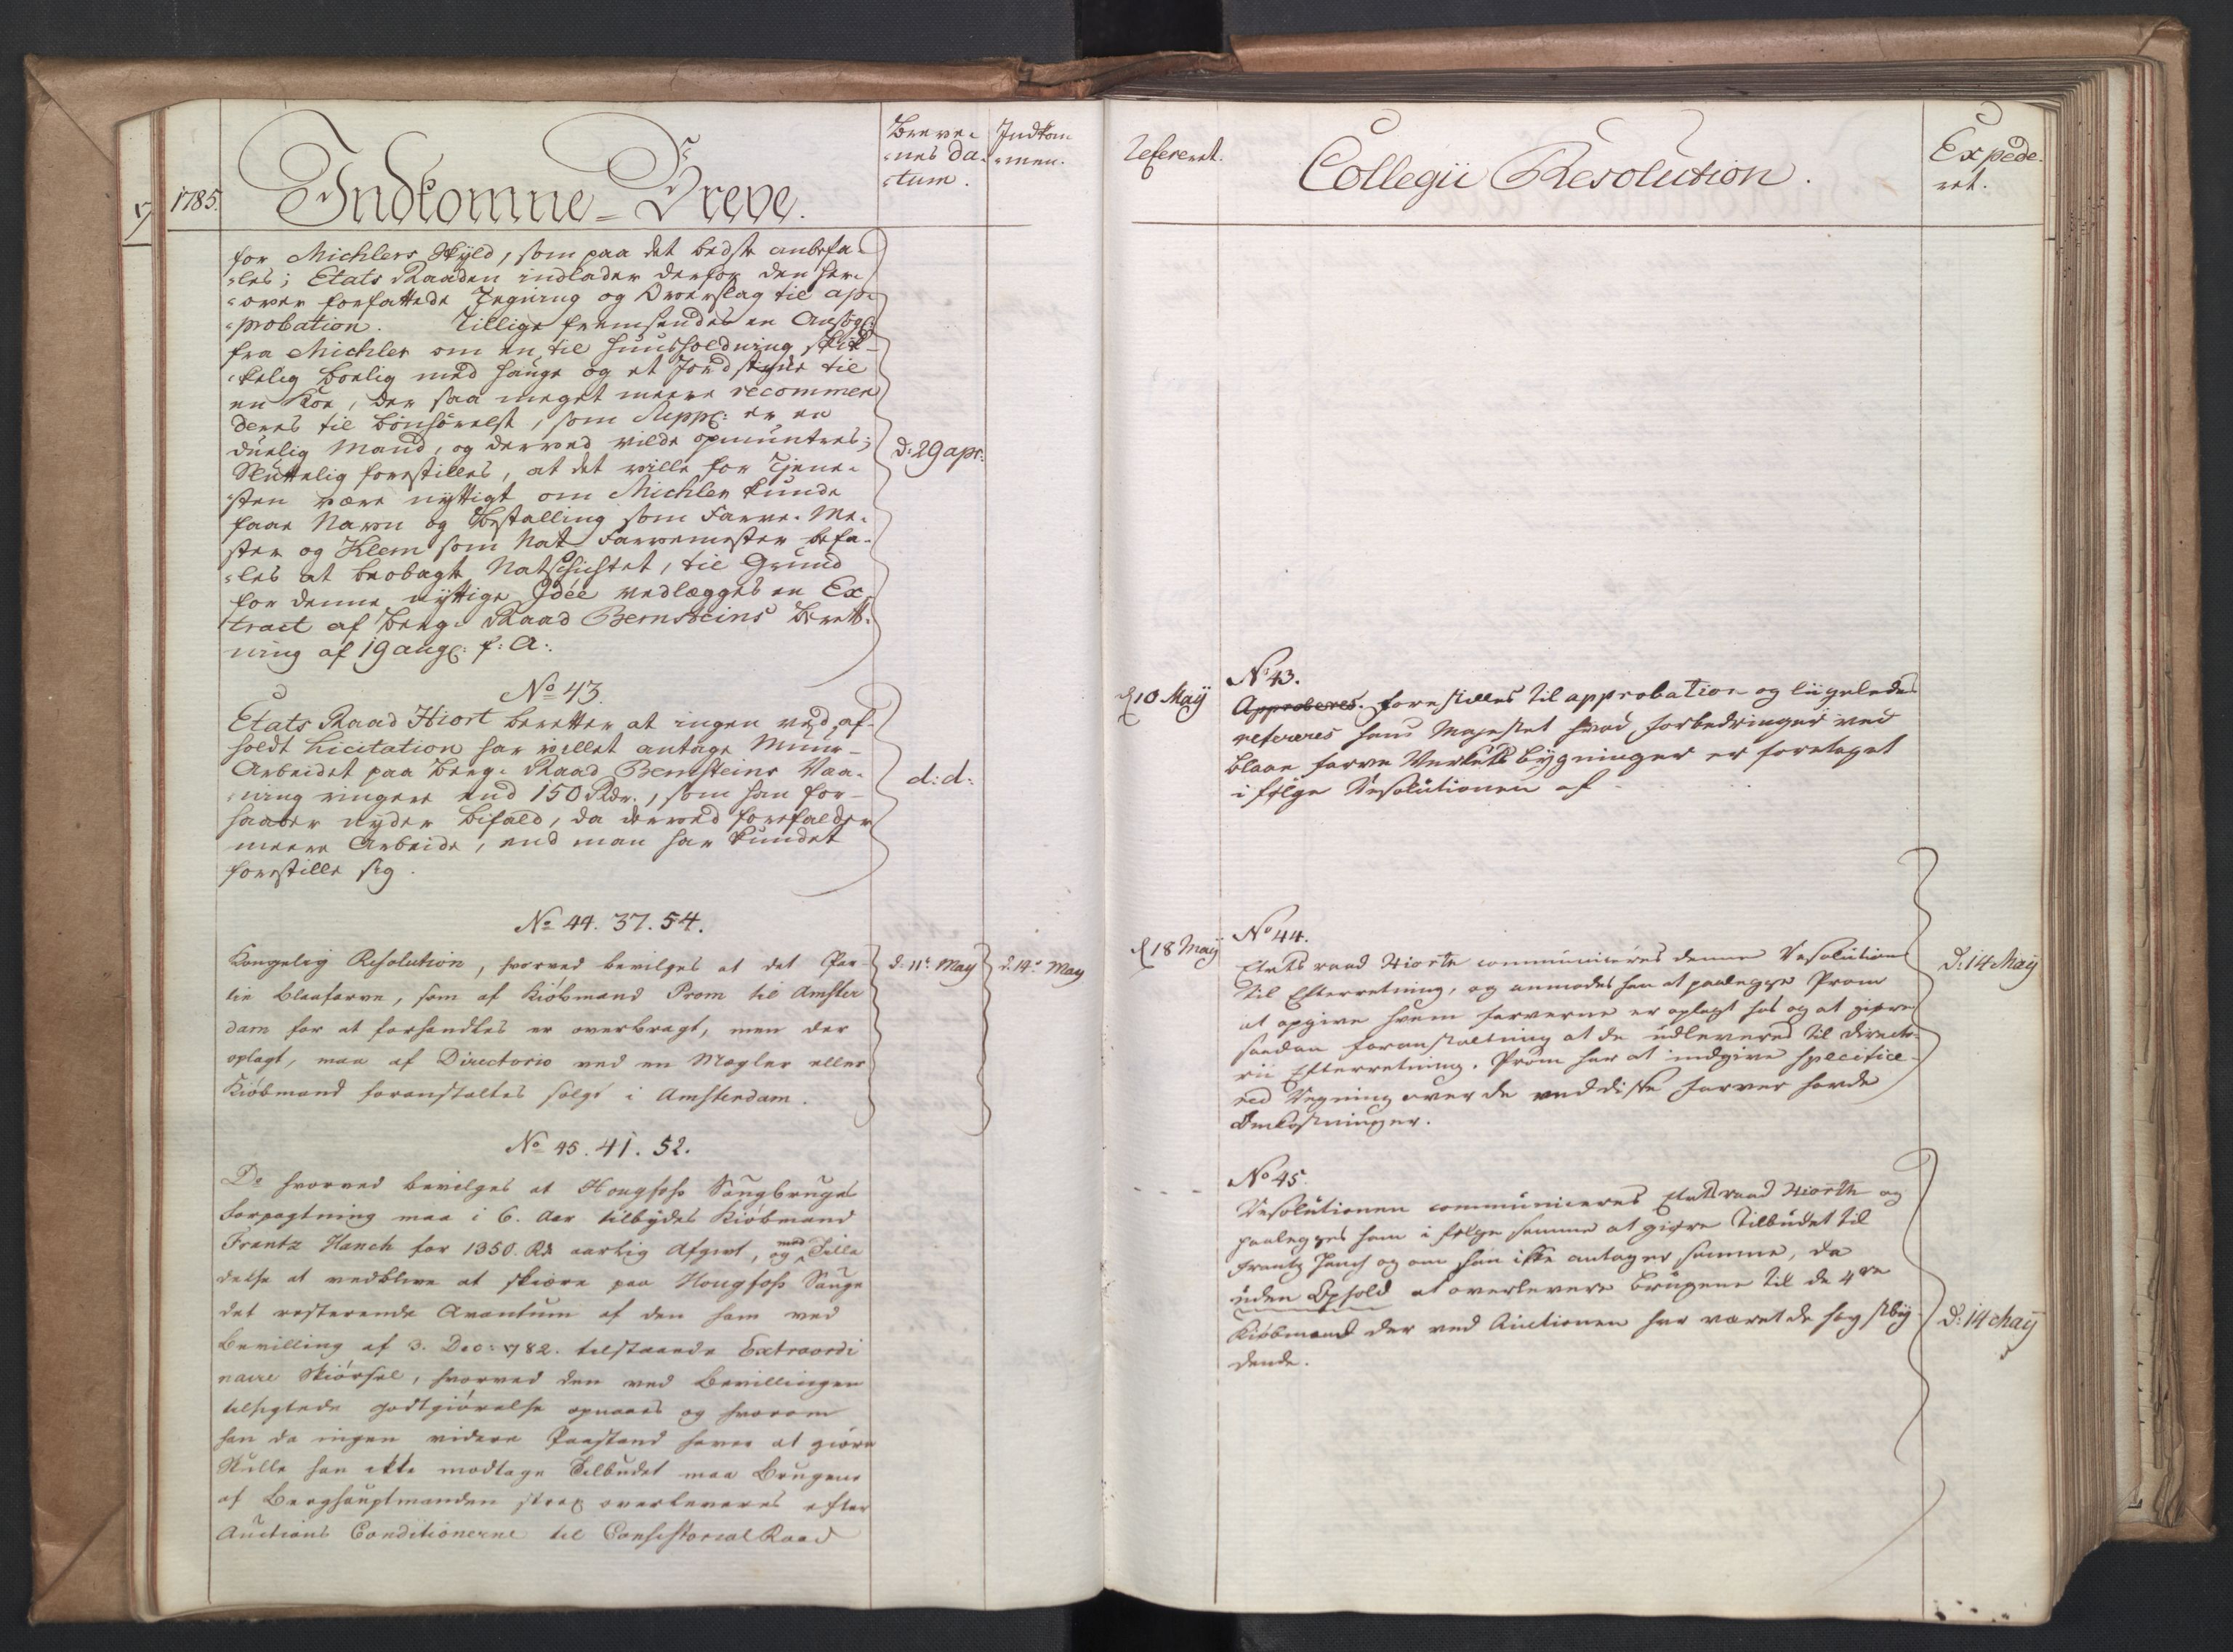 1785.
Indkomne-Breve.
Breve-
-nes da-
-tum.
Indkom
-men.
for Michlers Skyld, som paa det bedste anbefa-
-les; Etats Raaden indlader derfor den her-
-over forfattede Tegning og Overslag til ap-
-probation. Tillige fremsendes en Ansøg:
fra Michler om en til Huusholdning skik-
-kelig Boelig med Hauge og et Jordstykke til
en Koe, der saa meget meere recommen
deres til Bønhørelse, som Suppl: er en
duelig Mand, og derved vilde opmuntres;
Sluttelig forestilles, at det ville for Tjene-
sten være nyttigt om Michler kunde
faae Navn og Bestalling som Farve-Me-
ster og Klem som Nat Farvemester befa-
-les at beobagte Natschichtet, til Grund
for denne nyttige Idée vedlægges en Ex
tract af Berg-Raad Bernsteins Beret-
ning af 19 aug: f: A:.
d: 29 apr:
No 43.
Etats Raad Hiort beretter at ingen ved af-
holdt Licitation har villet antage Muur-
Arbeidet paa Berg-Raad Bernsteins Vaa-
-ning ringere end 150 Rdr., som han for-
haaber nyder Bifald, da derved forefalder
meere Arbeide, end man har kundet
forestille sig.
d: d:
No 44. 37. 54.
Kongelig Resolution, hvorved bevilges at det Par-
tie Blaafarve, som af Kiøbmand Prom til Amster
dam for at forhandles er overbragt, men der
oplagt, maa af Directorio ved en Mægler eller
Kiøbmand foranstaltes solgt i Amsterdam.
d: 11te May
d: 14de May
No 45. 41. 52.
Do hvorved bevilges at Hougfoss Saugbruges
Forpagtning maa i 6. Aar tilbydes Kiøbmand
Frantz Hanch for 1350. Rd aarlig Afgivt, og med Tilla
delse at vedblive at skiære paa Hougfoss Sauge
det resterende Qvantum af den ham ved
Bevilling af 3. Dec: 1782. tilstaaede Extraordi
naire Skiørsel, hvorved den ved Bevillingen
tilsigtede Godtgiørelse opnaaes og hvorom
han da ingen videre Paastand haver at giøre
Skulle han ikke modtage Tilbudet maa Brugene
af Berghauptmanden strax overleveres efter
Auctions Conditionerne til Consistorial Raad
Refereret.
Collegii Resolution.
Expede-
ret.
d 10 Maij
No 43.
Approberes. forestilles til approbation og liigeledes
refereres Hans Majestet hvad forbedringer ved
Blaae farve Verkets bygninger er foretaget
i følge Resolutionen af
d 18 Maij
No 44.
Etats raad Hiorth communiceres denne Resolution
til Efterretning, og anmodes han at paalegge Prom
at opgive hvem farverne er oplagt hos og at giøre
saadan foranstaltning at de udleveres til Directo-
rii Efterretning. Prom har at indgive specifice
red Regning over de med disse farver havde
Omkostninger.
d: 14 Maij
No 45.
Resolutionen communiceres Etats raad Hiorth og
paalegges ham i følge samme at giøre Tilbudet til
Frantz Hanch og om han ikke antager samme, da
uden Ophold at overlevere Brugene til de 4re
Kiøbmænd der ved Auctionen har været de høystbÿ
dende.
d: 14 Maij